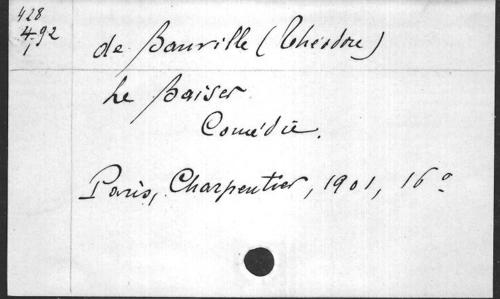 428
4-92
1
de Banville (Théodore)
Le Baiser
Comédie.
Paris, Charpentier, 1901, 16°